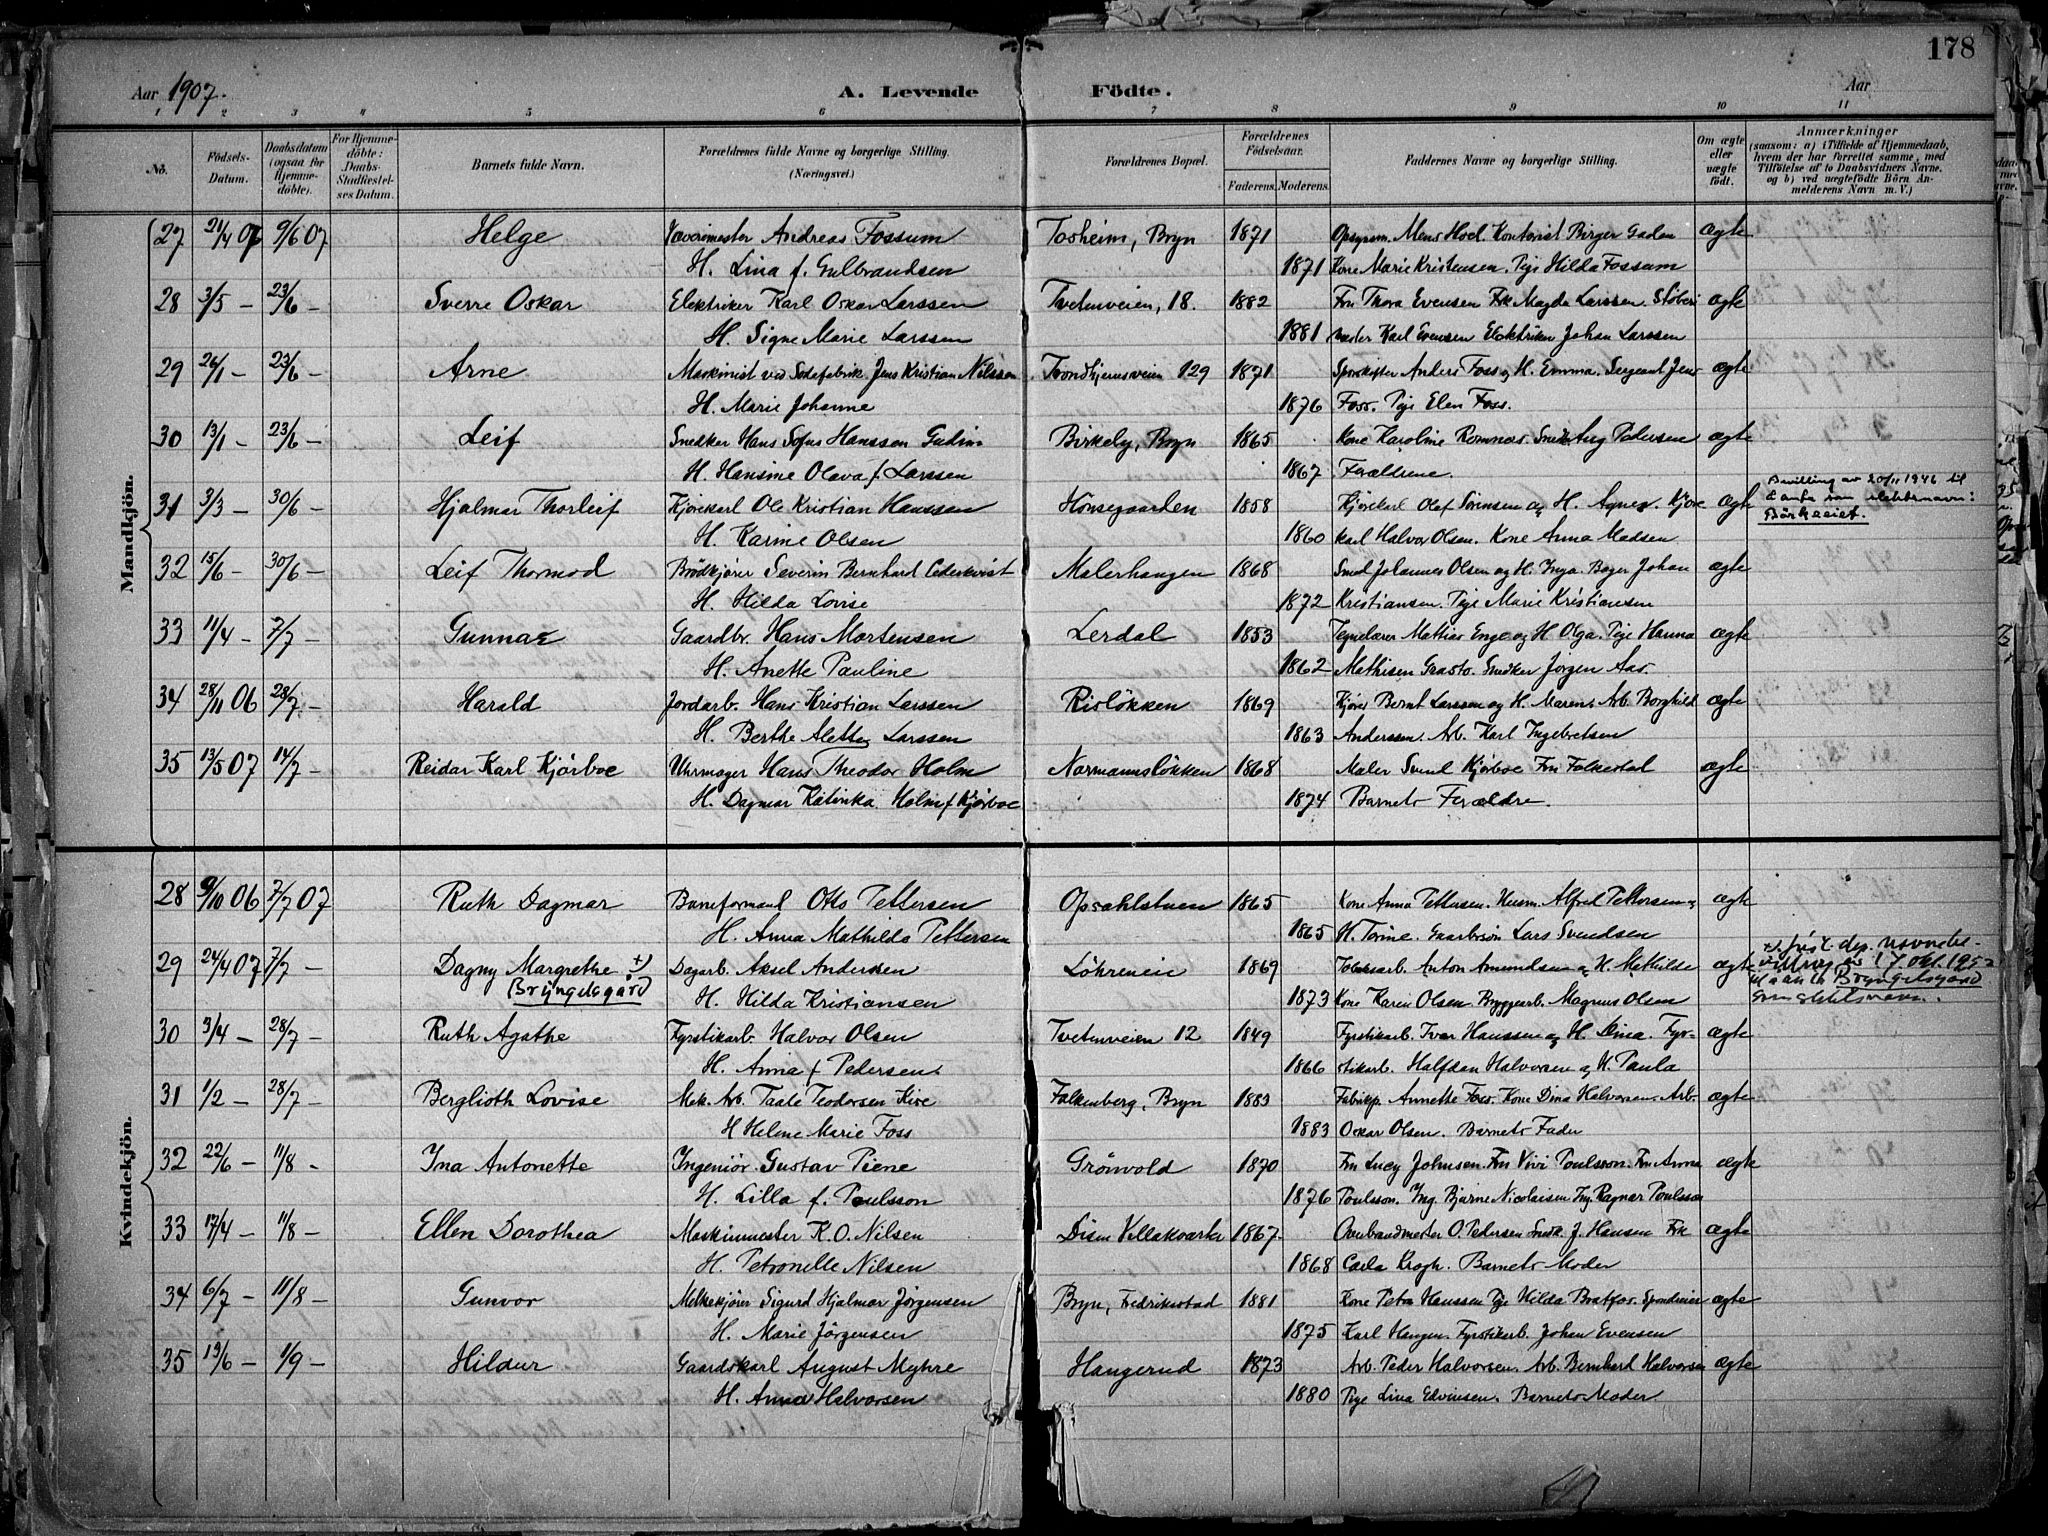 178
Aar 1907. A. Levende Födte. Aar
1 2 3 4 5 6 7 8 9 10 11
No. Födsels-Datum. Daabsdatum (ogsaa for Hjemmedöbte). For Hjemmedöbte: Daabs-Stadfæstelses Datum. Barnets fulde Navn. Forældrenes fulde Navne og borgerlige Stilling. (Næringsvei.) Forældrenes Bopæl. Forældrenes Födselsaar. Faderens. Moderens. Faddernes Navne og borgerlige Stilling. Om ægte eller uægte födt. Anmærkninger (saasom: a) i Tilfælde af Hjemmedaab, hvem der har forrettet samme, med Tilföielse af to Daabsvidners Navne, og b) ved uægtefödte Börn Anmelderens Navn m. V.)
Mandkjön.
27 21/4 07 9/6 07 Helge Væverimester Andreas Fossum Tosheim, Bryn 1871 Opsynsm. Mens Hoel Kontorist Birger Gaden ægte
H. Lina f. Gulbrandsen 1871 Kone Marie Kristensen. Pige Hilda Fossum
28 3/5 – 23/6 – Sverre Oskar Elektriker Karl Oskar Larssen Tvetenveien, 18. 1882 Fru Thora Evensen Frk Magda Larssen. Stöberi ægte
H. Signe Marie Larssen 1881 mester Karl Evensen Elektriker Johan Larssen
29 26/1 – 23/6 – Arne Maskinist ved Sodafabrik. Jens Kristian Nilssen Trondhjemsveien 129 1871 Sporskifter Anders Foss og H. Emma. Sergeant Jens ægte
H. Marie Johanne 1876 Foss. Pige Elen Foss.
30 13/1 – 23/6 – Leif Snedker Hans Sofus Hanssen Gudim Birkely, Bryn 1865 Kone Karoline Romnæs. Snedk Aug Pedersen ægte
H. Hansine Olava f. Larssen 1867 Forældrene.
31 3/3 – 30/6 – Hjalmar Thorleif Kjörekarl Ole Kristian Hanssen Hönsegaarden 1858 Kjörekarl Olaf Sörensen og H. Agnes. Kjöre ægte Bevilling av 20/11 1946 til å anta som slektsnavn: Börkeeiet.
H. Karine Olsen 1860 karl Halvor Olsen. Kone Anna Madsen
32 15/6 – 30/6 – Leif Thormod Brödkjörer Severin Bernhard Cederkvist Malerhaugen 1868 Smed Johannes Olsen og H. Inga. Bager Johan ægte
H. Hilda Lovise 1872 Kristiansen. Pige Marie Kristiansen
33 11/4 – 7/7 – Gunnar Gaardbr. Hans Mortensen Lerdal 1853 Tegnelærer Mathias Enge og H Olga. Pige Hanna ægte
H. Anette Pauline 1862 Mathisen Gaasto. Snedker Jörgen Aas.
34 28/11 06 28/7 – Harald Jordarb. Hans Kristian Larssen Rislökken 1869 Kjörer Bernt Larssen og H. Maren. Arb Borghild ægte
H. Berthe Alette Larssen 1863 Anderssen. Arb. Karl Ingebretsen
35 13/5 07 14/7 – Reidar Karl Kjörboe Uhrmager Hans Theodor Holm Normannslökken 1868 Maler Svend Kjörboe Fru Falkestad ægte
H. Dagmar Katinka Holm f. Kjörboe 1874 Barnets Forældre.
Kvindekjön.
28 9/10 06 7/7 07 Ruth Dagmar Baneformand Otto Pettersen Opsahlstuen 1865 Kone Anna Pettersen. Husm. Alfred Pettersen og ægte
H. Anna Mathilde Pettersen 1865 H. Torine. Gaardssön Lars Svendsen
29 24/4 07 7/7 – Dagny Margrethe +) Dagarb. Aksel Andersen Löhreneie 1869 Toldarb. Anton Amundsen og H. Mathilde ægte +) just. dep. navnebevilling av 17. okt. 1952
(Bryngelsgård) H. Hilda Kristiansen 1873 Kone Karen Olsen. Byggearb. Magnus Olsen til å anta Bryngelsgård som slektsnavn.
30 3/4 – 28/7 – Ruth Agathe Fyrstikarb. Halvor Olsen Tvetenveien 12 1849 Fyrstikarb. Ivar Hanssen og H. Dina. Fyr- ægte
H. Anna f Pedersen. 1866 stikarb. Halfdan Halvorsen og H. Paula
31 1/2 – 28/7 – Berglioth Lovise Mek. Arb. Taale Teodorsen Kire Falkenberg, Bryn 1883 Fabrikp. Annette Foss. Kone Dina Halvorsen. Arb. ægte
H Helene Marie Foss 1883 Oskar Olsen. Barnets Fader
32 22/6 – 11/8 – Ina Antonette Ingeniör. Gustav Piene Grönvold 1870 Fru Lucy Johnsen. Fru Vivi Poulsson. Fru Anna ægte
H. Lilla f. Poulsson 1876 Poulsson. Ing. Bjarne Nicolaisen Ing. Ragnar Poulsson
33 17/4 – 11/8 – Ellen Dorothea Maskinmester K. O. Nilsen Disen Villakvarter 1867. Overbrandmester O. Pedersen Snedk. J. Hansen Frk ægte
H. Petronelle Nilsen 1868 Carla Krogh. Barnets Moder
34 6/7 – 11/8 – Gunvor Melkekjörer Sigurd Hjalmar Jörgensen Bryn, Fredriksstad 1881 Kone Petra Hanssen Pige Hilda Bratfos. ægte
H. Marie Jörgensen 1875 Karl Haugen. Fyrstikarb. Johan Evensen
35 13/6 – 1/9 – Hildur Gaardskarl August Myhre Haugerud 1873 Arb. Peder Halvorsen. Arb. Bernhard Halvorsen ægte
H. Anna Halvorsen 1880 Pige Lina Edvinsen. Barnets Moder.